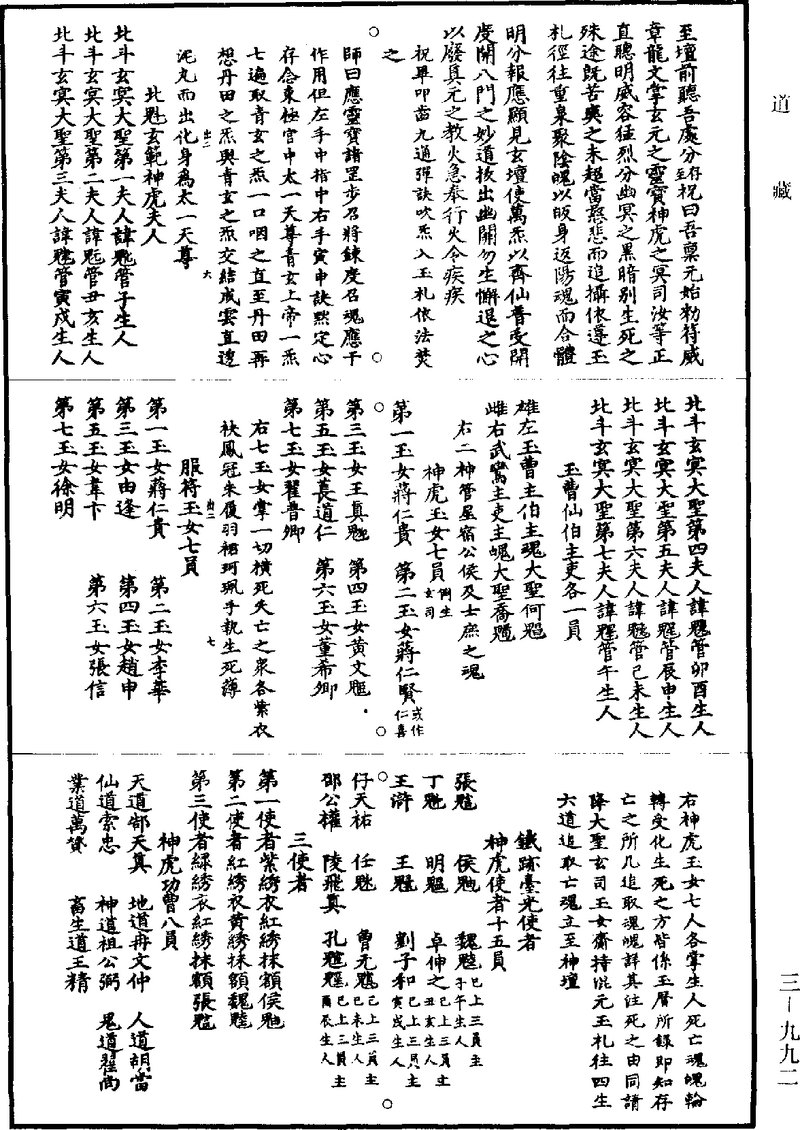 道藏
至壇前聽吾處分存祝曰吾稟元始勑符威
章龍文掌玄元之靈寶神虎之冥司汝等正
直聰明威容猛烈分幽冥之黑暗別生死之
殊途既苦爽之未超當慈悲而追攝依遵玉
札徑往重泉聚陰魄以皈身返陽魂而合體
明分報應顯見玄壇使萬炁以齊仙普受開
度開八門之妙道拔出幽關勿生懈退之心
以廢真元之教火急奉行火令疾疾
祝畢叩齒九通彈訣吹炁入玉札依法焚
之
師曰應靈寶諸罡步召將鍊度召魂應干
作用但左手中指中右手寅申訣默定心
存念東極宮中太一天尊青玄上帝一炁
七遍取青玄之炁一口咽之直至丹田再
想丹田之炁與青玄之炁交結成雲直透
泥丸而出化身為太一天尊
北魁玄範神虎夫人
北斗玄冥大聖第一夫人諱管子生人
北斗玄冥大聖第二夫人諱管丑亥生人
北斗玄冥大聖第三夫人諱管寅戌生人
北斗玄冥大聖第四夫人諱管卯酉生人
北斗玄冥大聖第五夫人諱管辰申生人
北斗玄冥大聖第六夫人諱管巳未生人
北斗玄冥大聖第七夫人諱管午生人
玉曹仙伯主吏各一員
雄左玉曹主伯主魂大聖何
雌右武鸞主吏主魄大聖喬
右二神管星宿公侯及士庶之魂
神虎玉女七員
第一玉女蔣仁貴 第二玉女蔣仁賢或作仁喜
第三玉女王真 第四玉女黃文
第五玉女萇道仁 第六玉女董希卿
第七玉女翟普卿
右七玉女掌一切橫死失亡之眾各紫衣
袂鳳冠朱履羽裙珂珮手執生死薄
服符玉女七員
第一玉女蔣仁貴 第二玉女李華
第三玉女由逢 第四玉女趙申
第五玉女韋卞 第六玉女張信
第七玉女徐明
右神虎玉女七人各掌生人死亡魂魄輪
轉受化生死之方皆係玉曆所錄即知存
亡之所凡追取魂魄詳其注死之由同請
降大聖玄司玉女齋持混元玉札往四生
六道追取亡魂立至神壇
鐵跡臺光使者
神虎使者十五員
張 侯 魏已上三員主子午生人
丁 明 卓伸之已上三員主丑亥生人
王滸 王 劉子和已上三員主寅戌生人
仔天祐 任 曹元已上三員主巳未生人
邵公權 陵飛真 孔已上三員主酉辰生人
三使者
第一使者紫綉衣紅綉抹額侯
第二使者紅綉衣黃綉抹額魏
第三使者綠綉衣紅綉抹額張
神虎功曹八員
天道郤天真 地道冉文仲 人道胡當
仙道索忠 神道祖公弼 鬼道翟尚
業道萬贇 畜生道王精
三-九九二